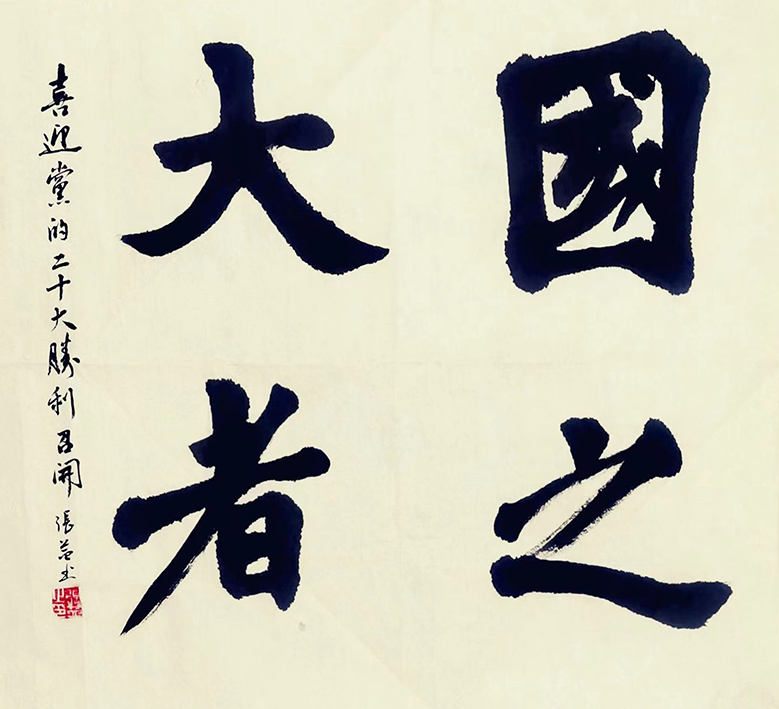 國之
大者
喜迎黨的二十大勝利召開
張益书